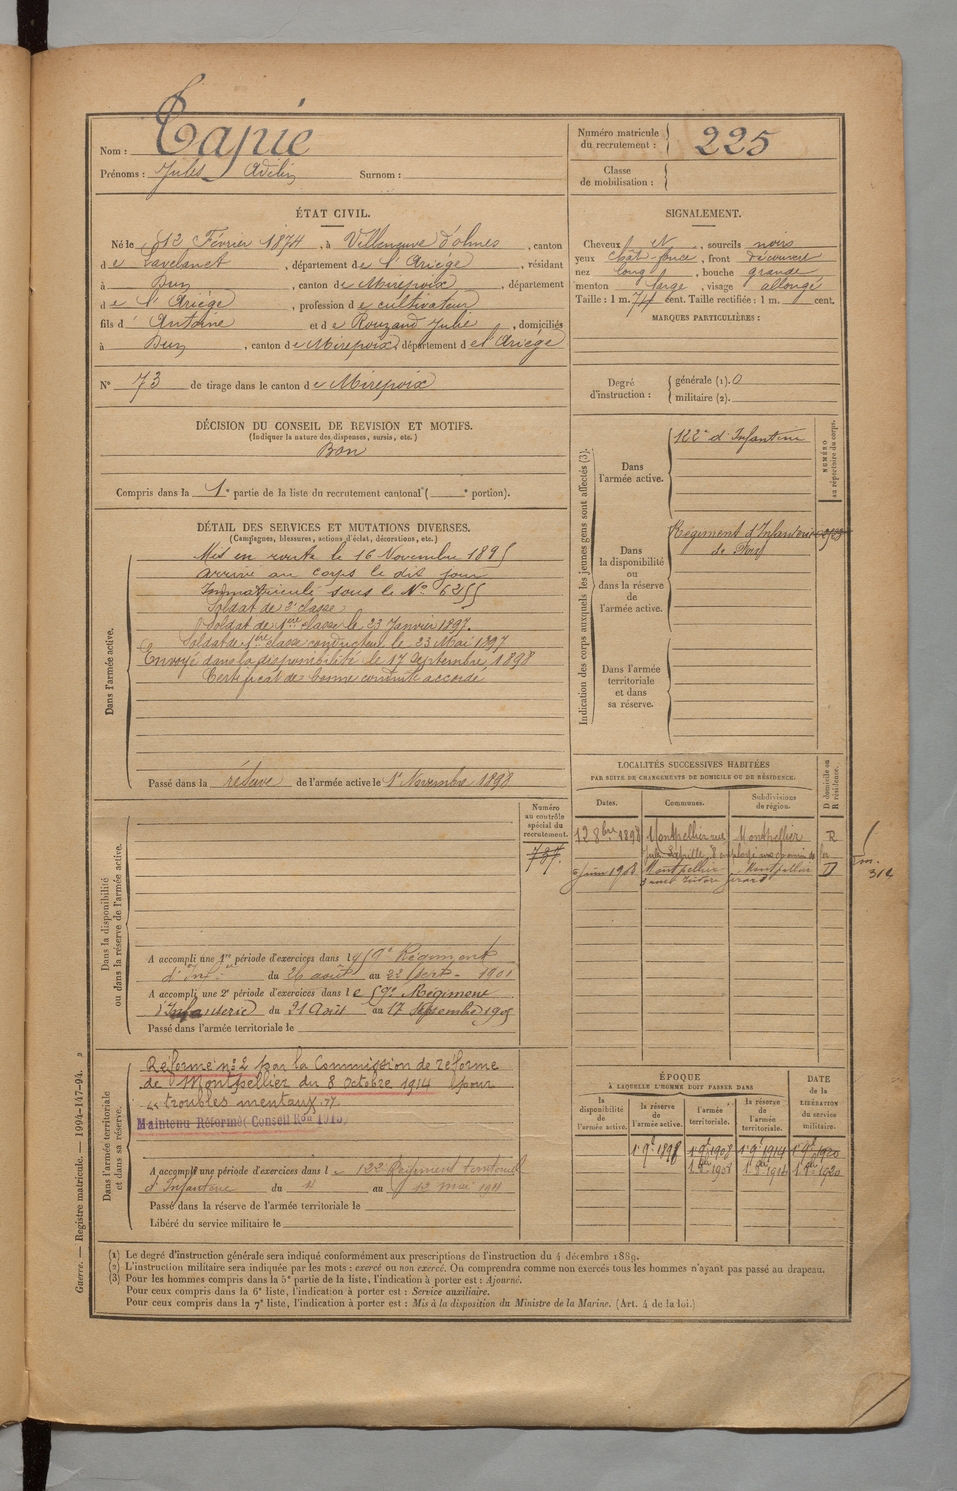 Nom : Tapié
Prénoms : Jules Adelin Surnom :
Numéro matricule du recrutement : 225
Classe de mobilisation :
ÉTAT CIVIL.
Né le 12 Février 1874, à Villeneuve d'olmes, canton
de Lavelanet, département de l'Ariège, résidant
à Dun, canton de Mirepoix, département
de l'Ariège, profession de cultivateur
fils d' Antoine et de Rouzaud Julie, domiciliés
à Dun, canton de Mirepoix, département de l'Ariège
N° 73 de tirage dans le canton de Mirepoix
SIGNALEMENT.
Cheveux N, sourcils noirs
yeux chât-foncé, front découvert
nez long, bouche grande
menton large, visage allongé
Taille : 1 m. 74 cent. Taille rectifiée : 1 m. cent.
MARQUES PARTICULIÈRES :
Degré d'instruction : générale (1). 0
militaire (2).
DÉCISION DU CONSEIL DE REVISION ET MOTIFS.
(Indiquer la nature des dispenses, sursis, etc.)
Bon
Compris dans la 1e partie de la liste du recrutement cantonal ( e portion).
DÉTAIL DES SERVICES ET MUTATIONS DIVERSES.
(Campagnes, blessures, actions d'éclat, décorations, etc.)
Dans l'armée active.
Mis en route le 16 Novembre 1895
arrivé au corps le dit jour
Immatriculé sous le N° 6255
Soldat de 2e classe
Soldat de 1ère classe le 23 Janvier 1897.
Soldat de 1ère classe conducteur le 23 Mai 1897
Envoyé dans la disponibilité le 17 Septembre 1898
Certificat de bonne conduite accordé
Passé dans la réserve de l'armée active le 1er Novembre 1898
Indication des corps auxquels les jeunes gens sont affectés (3).
NUMÉRO au répertoire du corps.
Dans l'armée active.
122e d'Infanterie
Dans la disponibilité ou dans la réserve de l'armée active.
Régiment d'Infanterie
de
Dans l'armée territoriale et dans sa réserve.
LOCALITÉS SUCCESSIVES HABITÉES
PAR SUITE DE CHANGEMENTS DE DOMICILE OU DE RÉSIDENCE.
Dates. Communes. Subdivisions de région. D domicile ou R résidence.
12 8bre 1898 Montpellier rue Montpellier R
6 Juin 1903 Montpellier Montpellier D
312
Dans la disponibilité ou dans la réserve de l'armée active.
Numéro au contrôle spécial du recrutement.
787.
A accompli une 1re période d'exercices dans le 59e Régiment
d'Infie du 26 août au 22 Sept. 1901
A accompli une 2e période d'exercices dans le 59e Régiment
d'Infanterie du 21 Août au 17 Septembre 1905
Passé dans l'armée territoriale le
Dans l'armée territoriale et dans sa réserve.
Réformé n° 2 par la Commission de réforme
de Montpellier du 8 Octobre 1914 pour
"troubles mentaux"
Maintenu Réformé (Conseil Ron 1915)
A accompli une période d'exercices dans le 122 Régiment territorial
d'Infanterie du 4 au 12 mai 1911
Passé dans la réserve de l'armée territoriale le
Libéré du service militaire le
ÉPOQUE
À LAQUELLE L'HOMME DOIT PASSER DANS
la disponibilité de l'armée active. la réserve de l'armée active. l'armée territoriale. la réserve de l'armée territoriale.
DATE de la LIBÉRATION du service militaire.
1er 9e 1898 1er 9e 1908 1er 9e 1914 1er 9e 1920
(1) Le degré d'instruction générale sera indiqué conformément aux prescriptions de l'instruction du 4 décembre 1889.
(2) L'instruction militaire sera indiquée par les mots : exercé ou non exercé. On comprendra comme non exercés tous les hommes n'ayant pas passé au drapeau.
(3) Pour les hommes compris dans la 5e partie de la liste, l'indication à porter est : Ajourné.
Pour ceux compris dans la 6e liste, l'indication à porter est : Service auxiliaire.
Pour ceux compris dans la 7e liste, l'indication à porter est : Mis à la disposition du Ministre de la Marine. (Art. 4 de la loi.)
Guerre. — Registre matricule. — 1994-147-94. 2